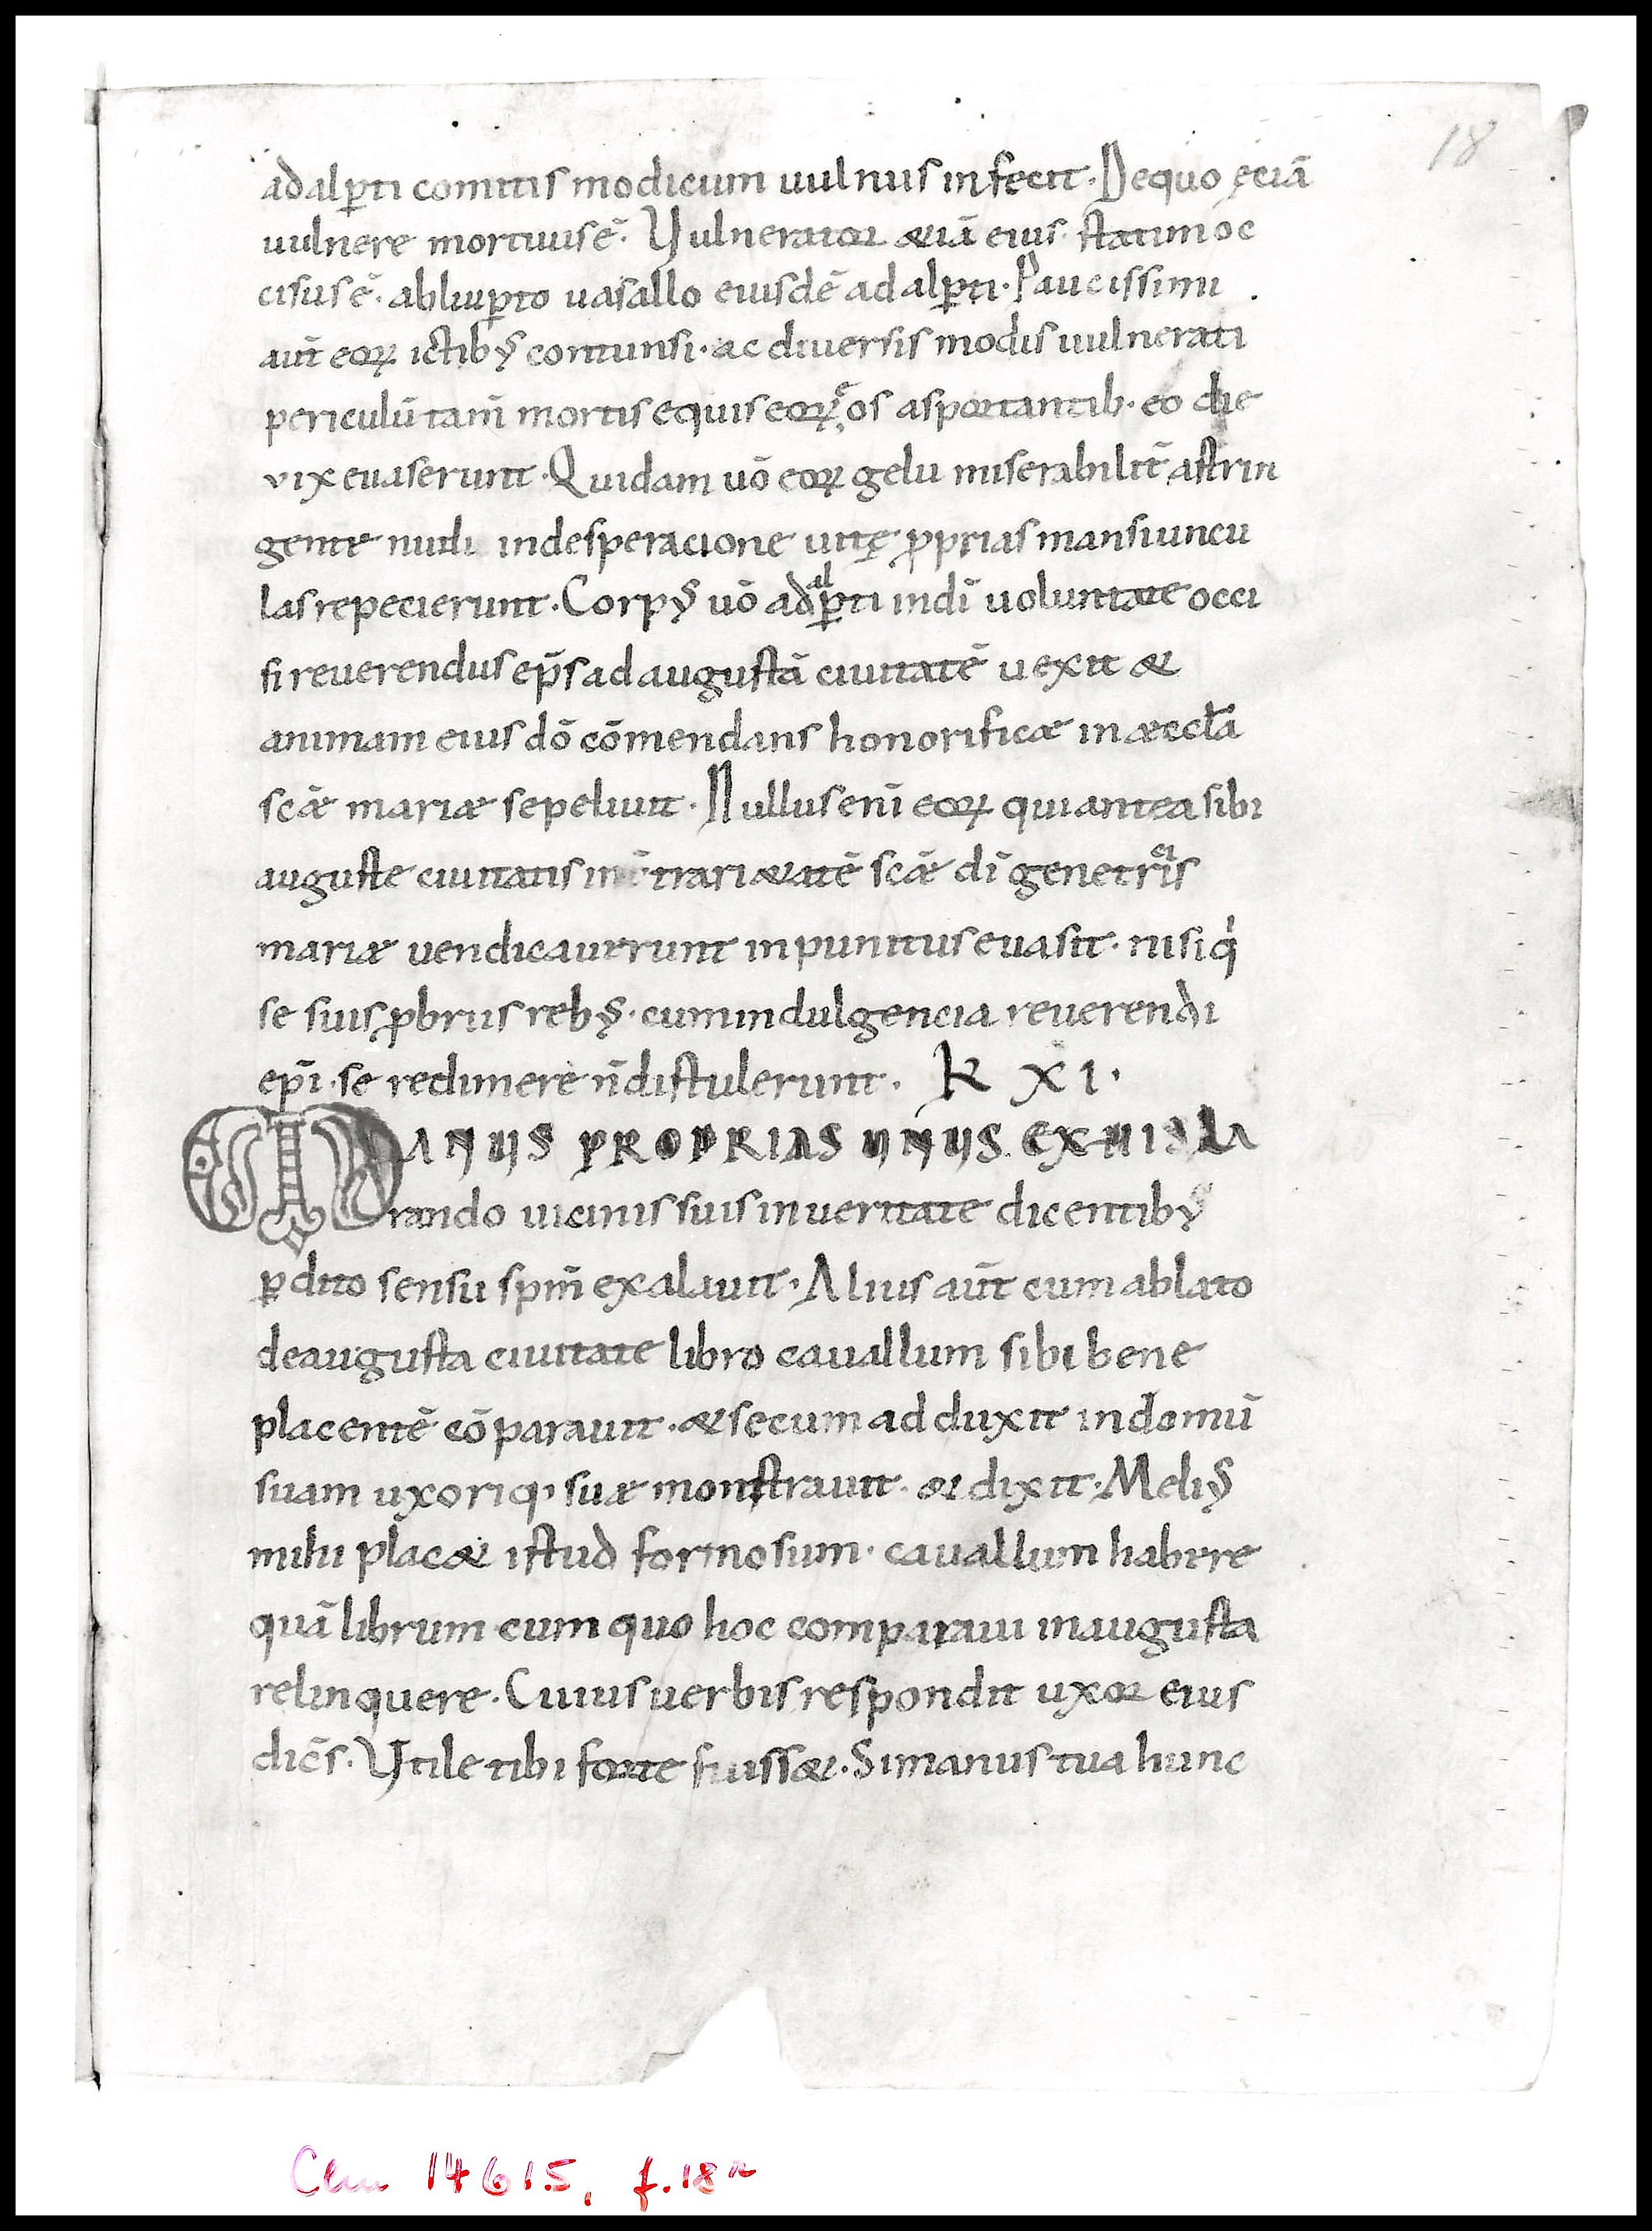 18
adalꝑti comitis modicum uulnus infecit. Dequo ęciā
uulnere mortuus ē. Vulnerator &iā eius statim oc
cisus ē. abliuꝑto uasallo eiusdē adalꝑti. Paucissimi
aut̄ eoꝝ ictibꝰ contunsi. ac diuersis modis uulnerati
periculū tam̄ mortis equis eoꝝ eos asportantib. eo die
vix euaserunt. Quidam uō eoꝝ gelu miserabilit̄ astrin
gente nudi indesperacione uitę ꝓprias mansiuncu
las repecierunt. Corpꝰ uō adalꝑti indī uoluntate occi
si reuerendus ep̄s ad augustā ciuitatē uexit &
animam eius dō cōmendans honorificæ in æccłā
scǣ mariæ sepeliuit. Nullus eni̅ eoꝝ qui antea sibi
auguste ciuitatis intrari&atē scǣ dī genetricis
mariæ vendicauerunt inpunitus euasit. nisi qͥ
se suis ꝓbriis rebꝰ. cum indulgencia reuerendi
ep̄i. se redimere n̄ distulerunt. K XI.
MANUS PROPRIAS UNUS EXHIALA
rando uicinis suis in ueritate dicentibꝰ
ꝑdito sensu spm̄ exalauit. Alius aūt cum ablato
deaugusta ciuitate libro cauallum sibi bene
placentē cōparauit. & secum adduxit indomū
suam uxoriq. suæ monstrauit. & dixit. Melꝰ
mihi plac& istud formosum. cauallum habere
quā librum cum quo hoc comparaui inaugusta
relinquere. Cuius uerbis respondit uxor eius
dicēs. Vtile tibi forte fuiss&. Si manus tua hunc
Clm 14615, f. 18r